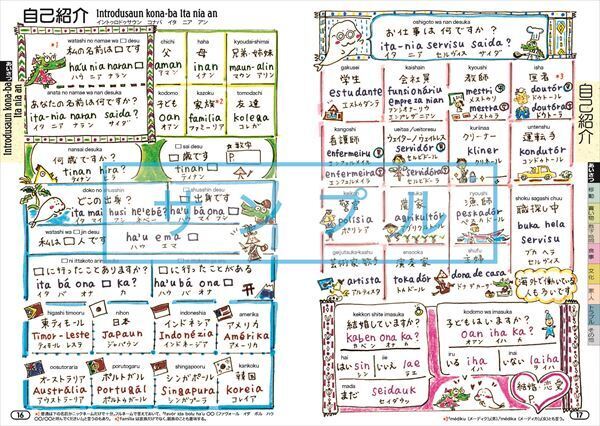 自己紹介 Introdusaun kona-ba Ita nia an
イントゥロドゥサウン コナバ イタ ニア アン
watashi no namae wa □ desu
*1
私の名前は□です
ha'u nia naran □
ハウ ニア ナラン
anata no namae wa nan desu ka
あなたの名前は何ですか?
ita-nia naran saida?
イタ ニア ナラン サイダ
chichi
父
aman
アマン
haha
母
inan
イナン
kyoudai-shimai
兄弟・姉妹
maun-alin
マウン アリン
kodomo
子ども
oan
オアン
kazoku
家族*2
familia
ファミーリア
tomodachi
友達
kolega
コレガ
nansai desu ka
何歳ですか?
tinan hira?
ティナン ヒラ
sai desu
□歳です
tinan □
ティナン
☆数字
P.
doko no shusshin desu
どこの出身?
ita mai husi ne'ebé?
イタ マイ
shusshin desu
□出身です
ha'u bá ona □
watashi wa □ jin desu
私は□人です
ha'u ema □
ハウ エマ
□に行ったことありますか?
ita bá ona □ ka?
イタ バ オナ カ
□に行ったことがある
ha'u bá ona □
ハウ バ オナ
higashi timooru
東ティモール
Timor-Leste
ティモール レステ
nihon
日本
Japaun
ジャパウン
indoneshia
インドネシア
Indonézia
インドネジア
amerika
アメリカ
Amérika
アメリカ
oosutoraria
オーストラリア
Austrália
アウストラリア
porutogaru
ポルトガル
Portugál
ポルトゥガル
shingapooru
シンガポール
Singapura
シンガプーラ
kankoku
韓国
Koreia
コレイア
16
oshigoto wa nan desuka
お仕事は何ですか?
ita-nia servisu saida?
イタ ニア セルヴィス サイダ
gakusei
学生
estudante
エストゥダンテ
kaishain
会社員
funsionáriu
empreza nian
kyoushi
教師
mestri
メストゥリ
mestra
メストラ
isha
医者 *3
doutór
ドウトール
doutóra
ドウトーラ
kangoshi
看護師
enfermeiru
エンフェルメイル
enfermeira
エンフェルメイラ
ueitas / ueitoresu
ウェイター/ウェイトレス
servidór
セルビドール
servidóra
セルビドーラ
kuriinaa
クリーナー
kliner
クリネル
untenshu
運転手
kondutór
コンドゥトール
警察
polísia
ポリシア
農家
agrikultór
アグリクルトール
漁師
peskadór
ペスカドール
shoku sagashi chuu
職探し中
buka hela
servisu
ブカ ヘラ
セルヴィス
geijutsuka-kashu
芸術家
artista
アルティスタ
ensousha
演奏家
tokadór
トカドール
shufu
主婦
dona de casa
ドナ デ カザ
海外で働いている
人も多いです
kekkon shite imasuka
結婚していますか?
kaben ona ka?
カベン オナ カ
kodomo wa imasuka
子どもはいますか?
oan iha ka?
オアン イハ カ
hai
はい
sin
シン
iie
いいえ
lae
ラエ
iru
いる
iha
イハ
inai
いない
laiha
ライハ
mada
まだ
seidauk
セイダウク
結婚・恋愛
P.
17
自己紹介
Introdusaun kona-ba
Ita nia an
あいさつ
自己紹介
あいさつ
移動
買い物
食事
文化
家
人
トラブル
その他
サンプル